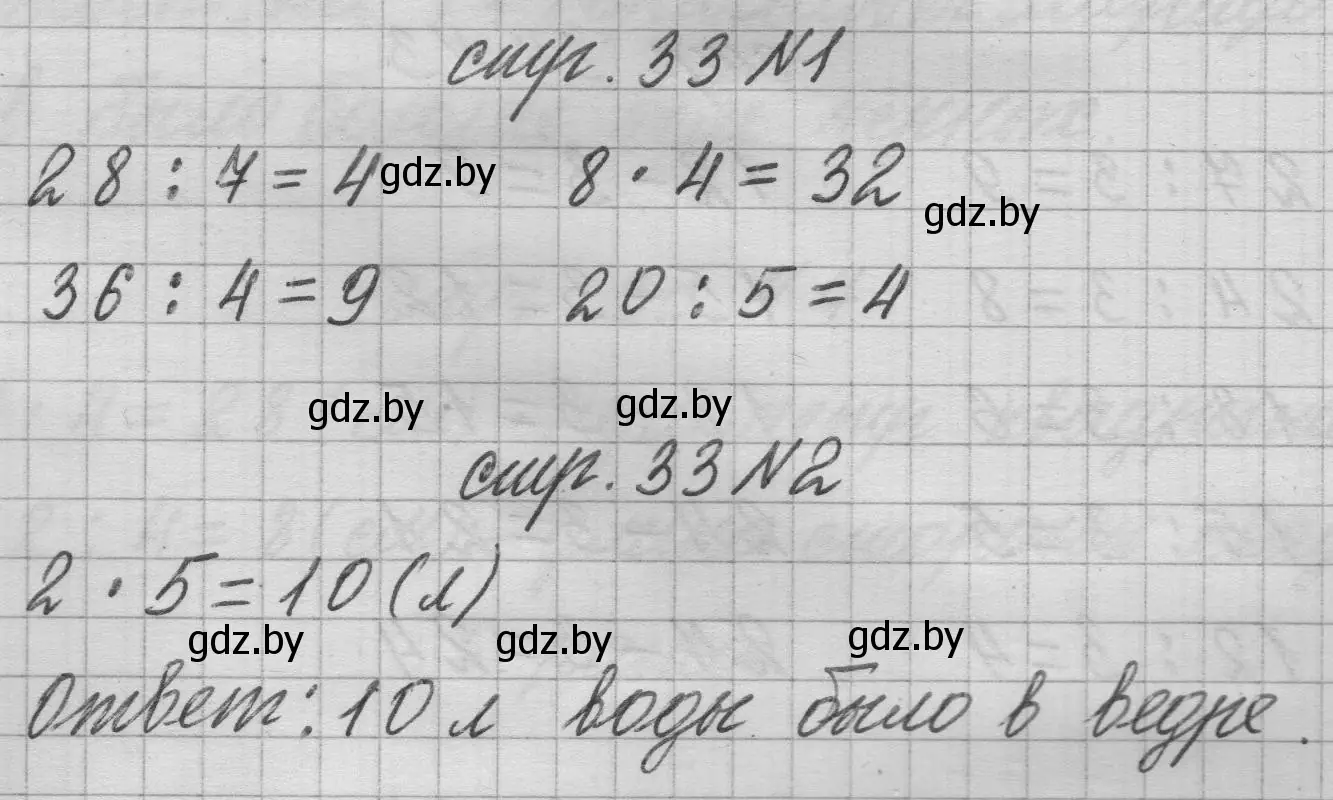 стр. 33 №1
28 : 7 = 4 gdz.by 8 · 4 = 32 gdz.by
36 : 4 = 9 20 : 5 = 4
gdz.by gdz.by
стр. 33 №2
2 · 5 = 10 (л)
gdz.by gdz.by gdz.by
Ответ: 10 л воды было в ведре.